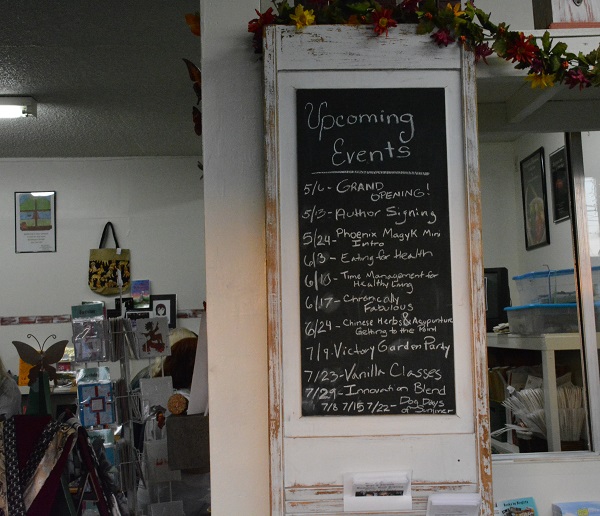 Upcoming
Events
5/6 - GRAND
OPENING!
5/13 - Author Signing
5/24 - Phoenix Magyk Mini
Intro
6/3 - Eating for Health
6/10 - Time Management for
Healthy Living
6/17 - Chronically
Fabulous
6/24 - Chinese Herbs & Acupuncture
Getting to the Point
7/9 - Victory Garden Party
7/23 - Vanilla Classes
7/29 - Innovation Blend
7/8 7/15 7/22 - Dog Days
of Summer